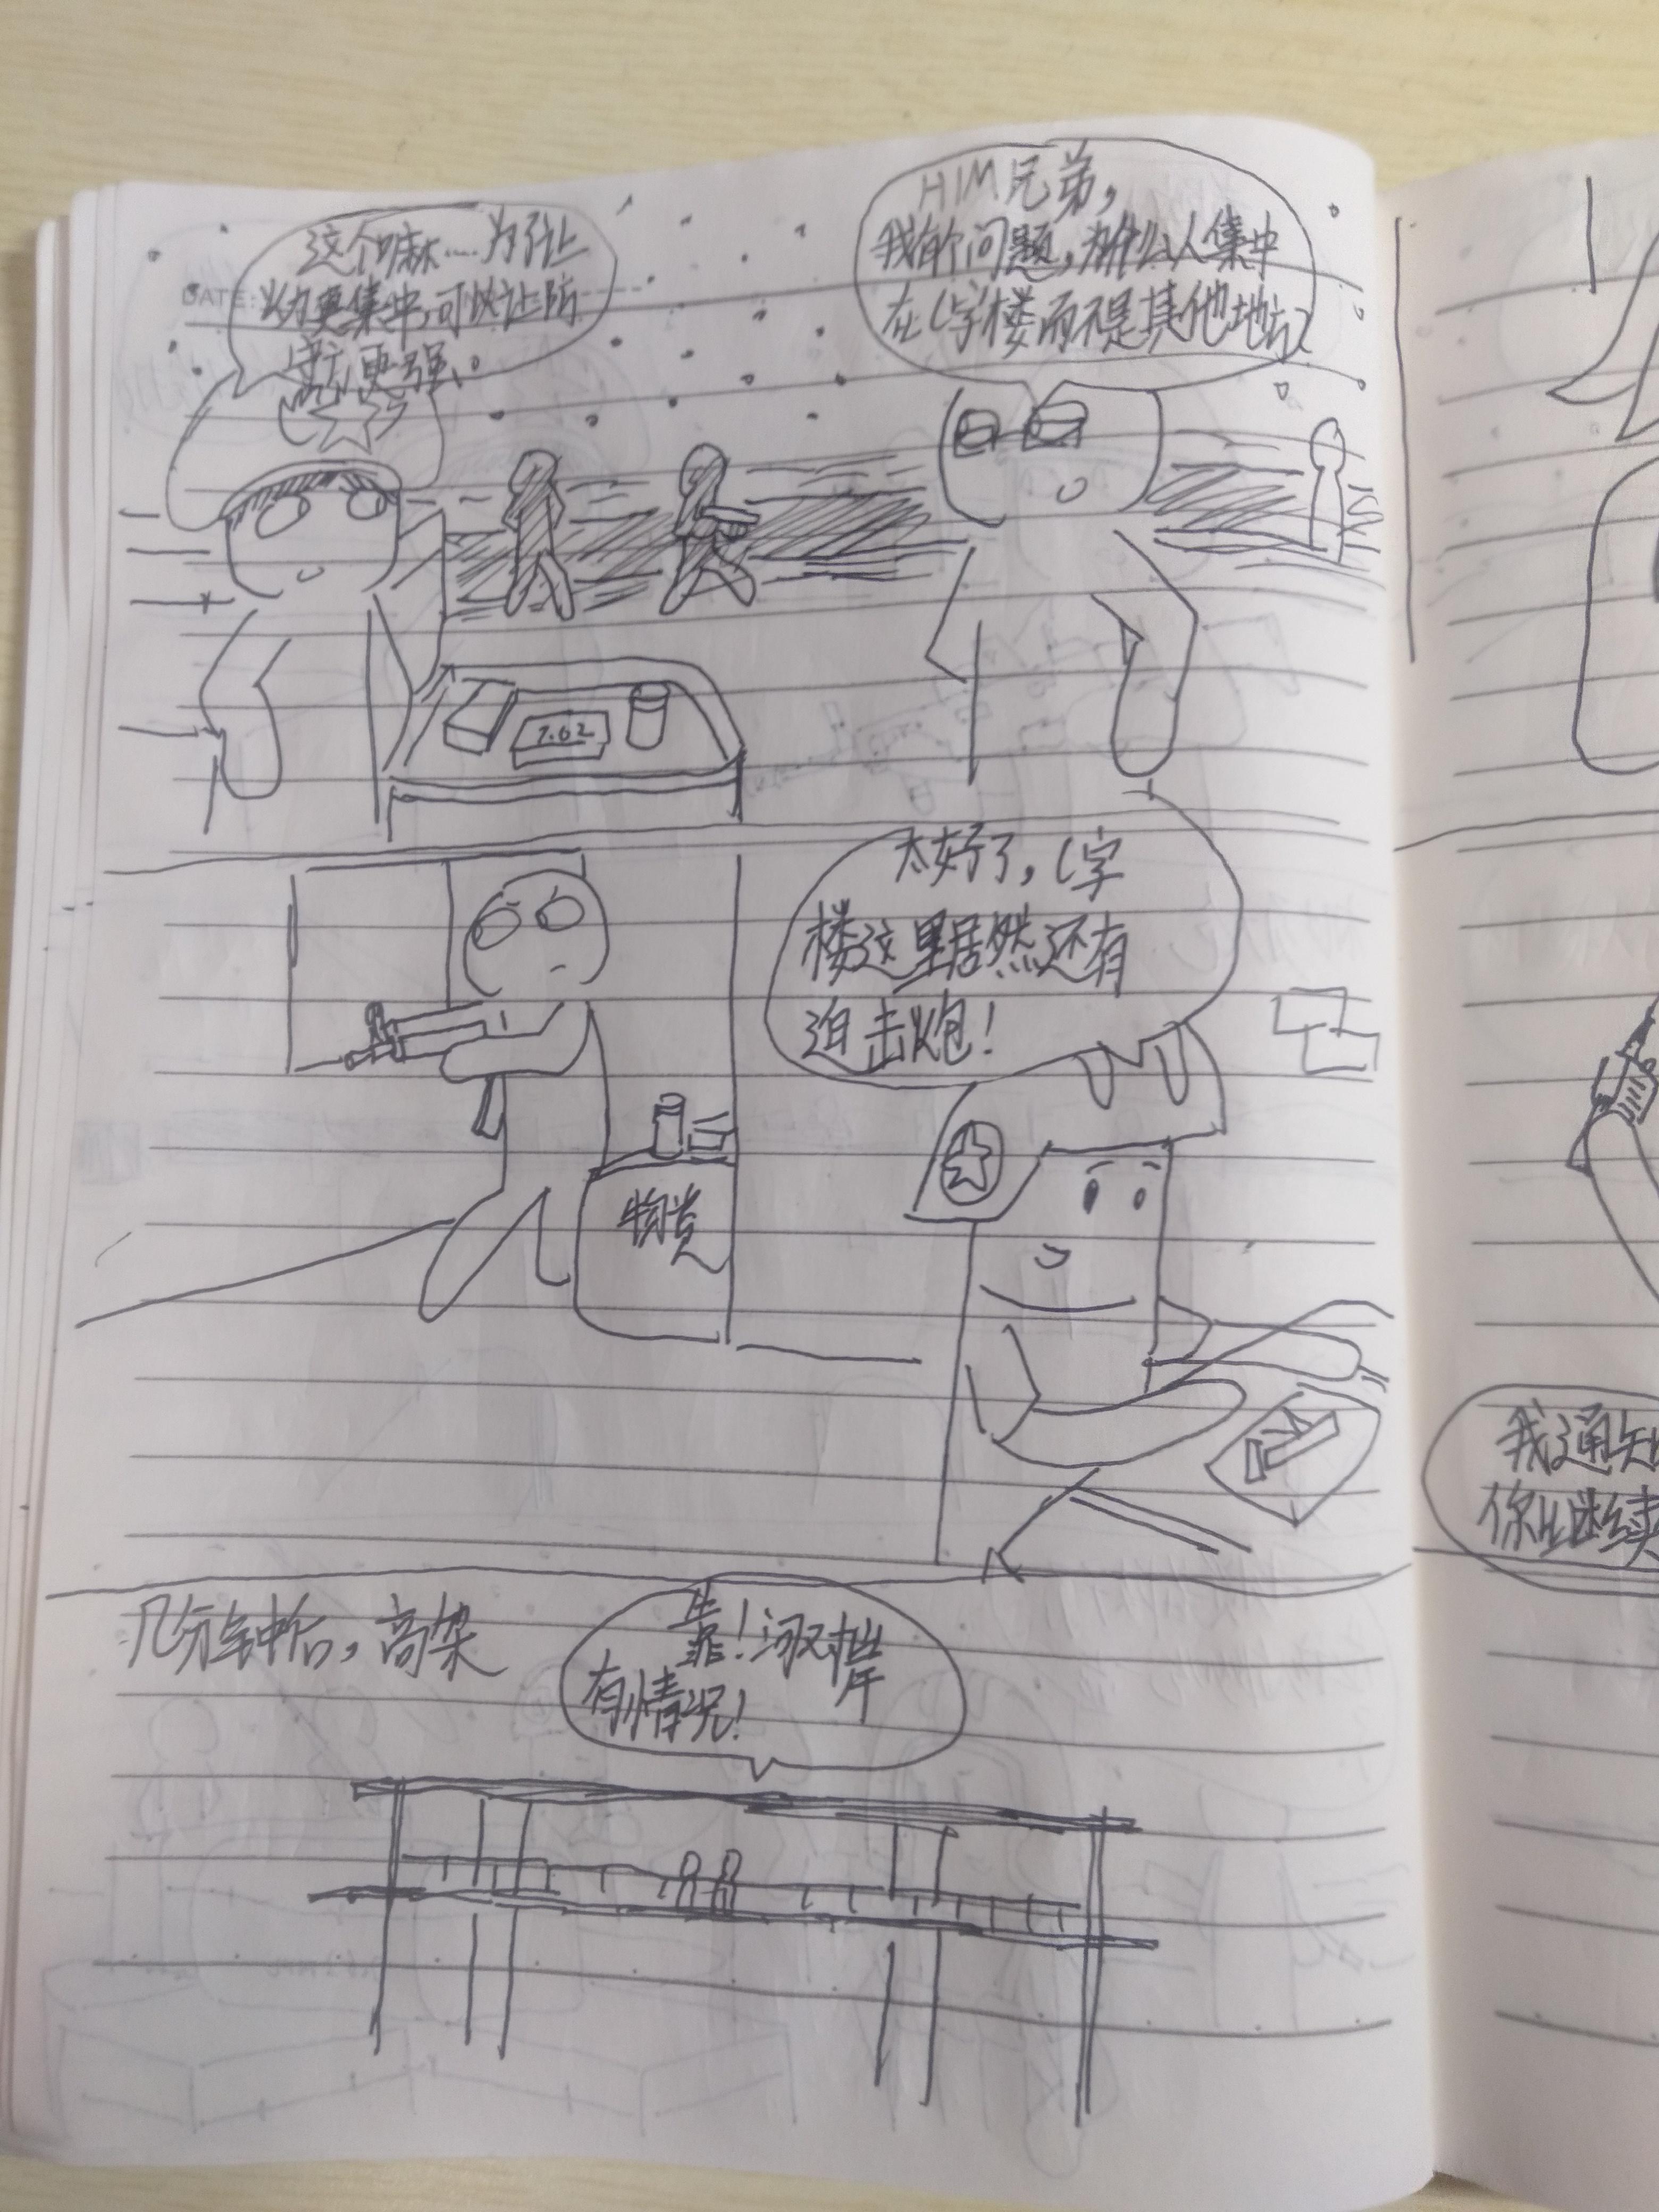 DATE:
这个嘛……为了让
火力更集中,可以让防
守更强。
HIM兄弟,
我有个问题,为什么人集中
在C字楼而不是其他地方?
7.62
太好了,C字
楼这里居然还有
迫击炮!
物资
几分钟后,高架
靠!河对岸
有情况!
我通知
你继续